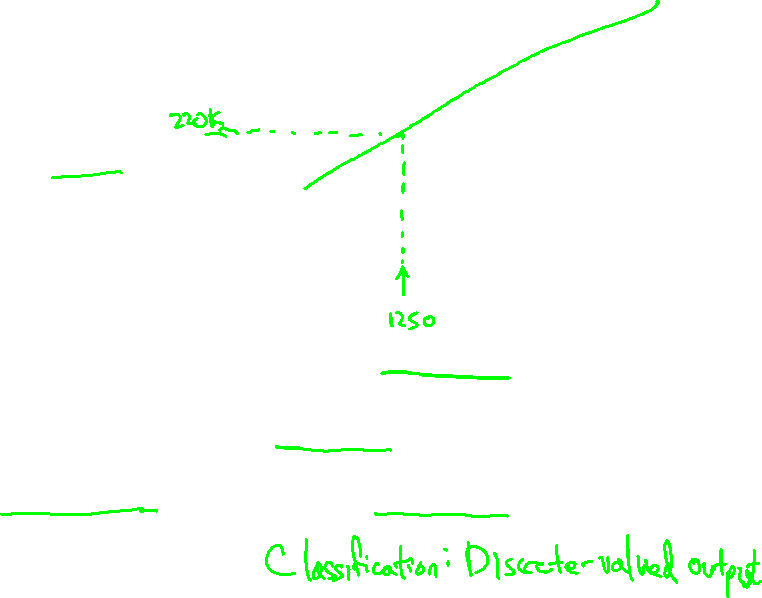 220k
1250
Classification: Discrete valued output